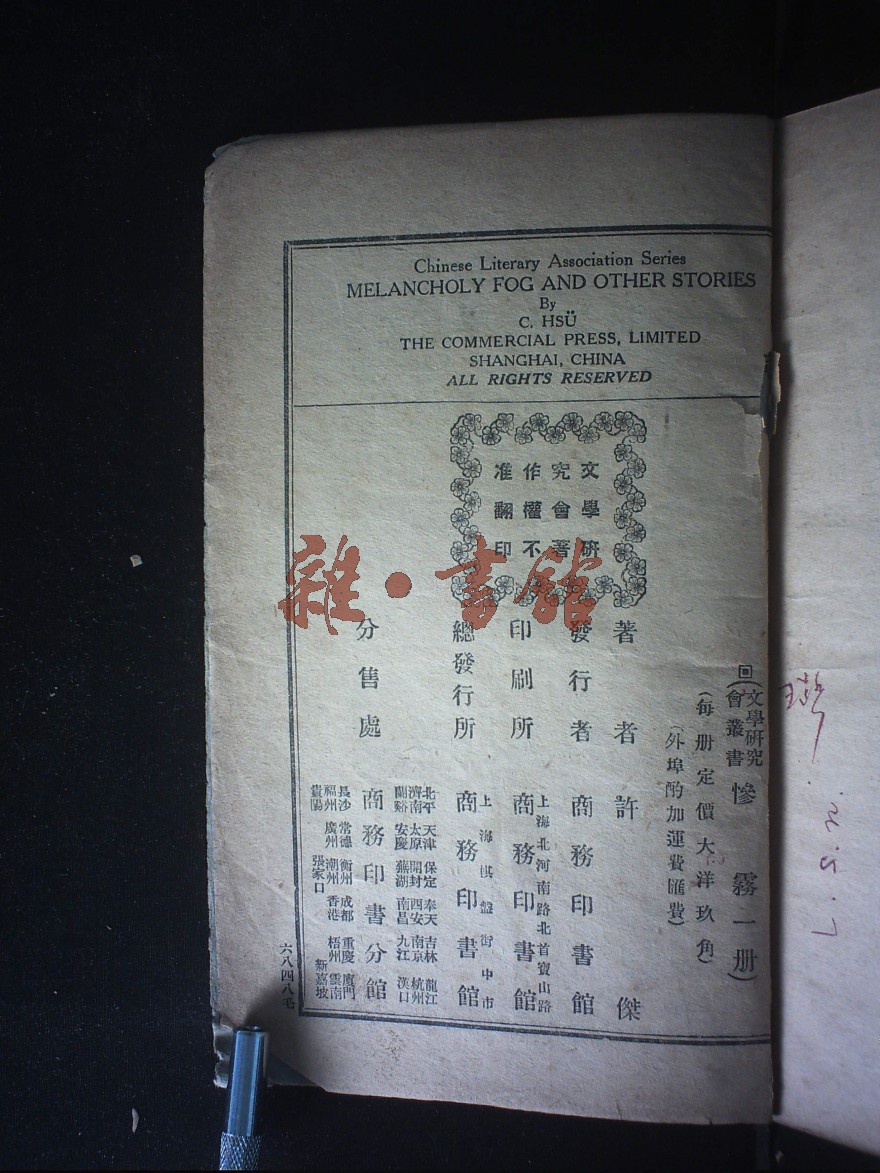 Chinese Literary Association Series
MELANCHOLY FOG AND OTHER STORIES
By
C. HSÜ
THE COMMERCIAL PRESS, LIMITED
SHANGHAI, CHINA
ALL RIGHTS RESERVED
文學研
究會著
作權不
准翻印
回(文學研究會叢書 慘霧一册)
(每册定價大洋玖角)
(外埠酌加運費匯費)
著者 許傑
發行者 商務印書館
印刷所 上海北河南路北首寶山路 商務印書館
總發行所 上海棋盤街中市 商務印書館
分售處 商務印書分館
北平 天津 保定 奉天 吉林 龍江
濟南 太原 開封 西安 南京 杭州
蘭谿 安慶 蕪湖 南昌 九江 漢口
長沙 常德 衡州 成都 重慶 廈門
福州 廣州 潮州 香港 梧州 雲南
貴陽 張家口 新嘉坡
六八四八毛
雜·書館